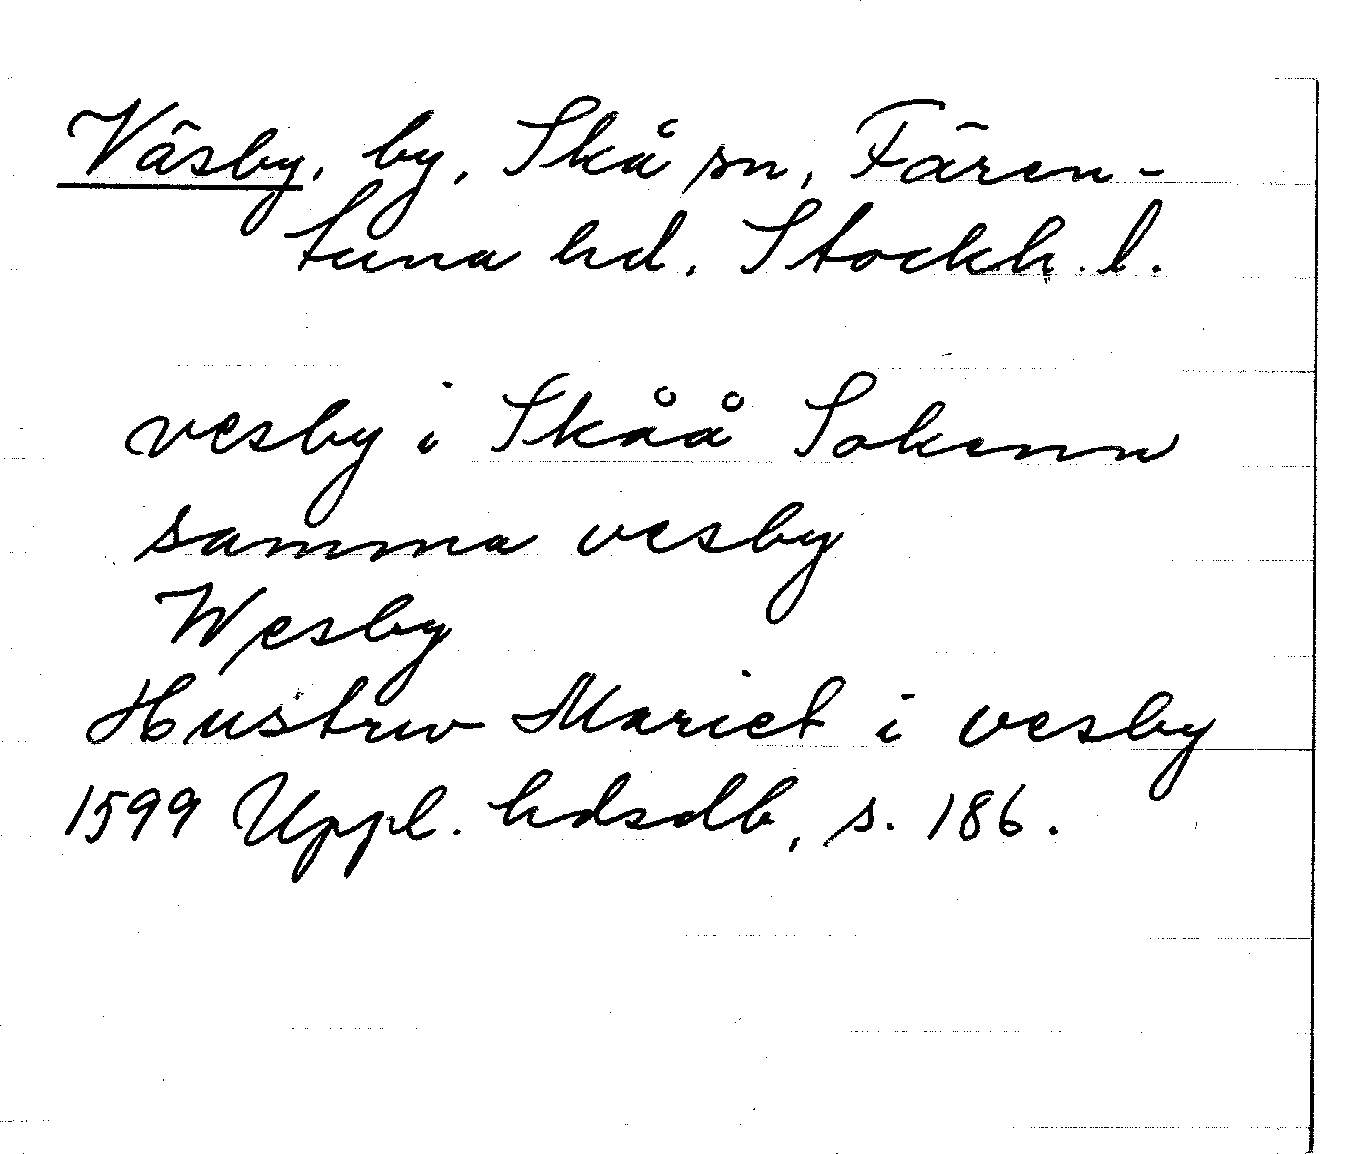 Väsby, by, Skå sn, Fären-
tuna hd. Stockh. l.
vesby i Skåå Sokenn
samma vesby
Wesby
Hustrw Mariet i vesby
1599 Uppl. hdsdb, s. 186.